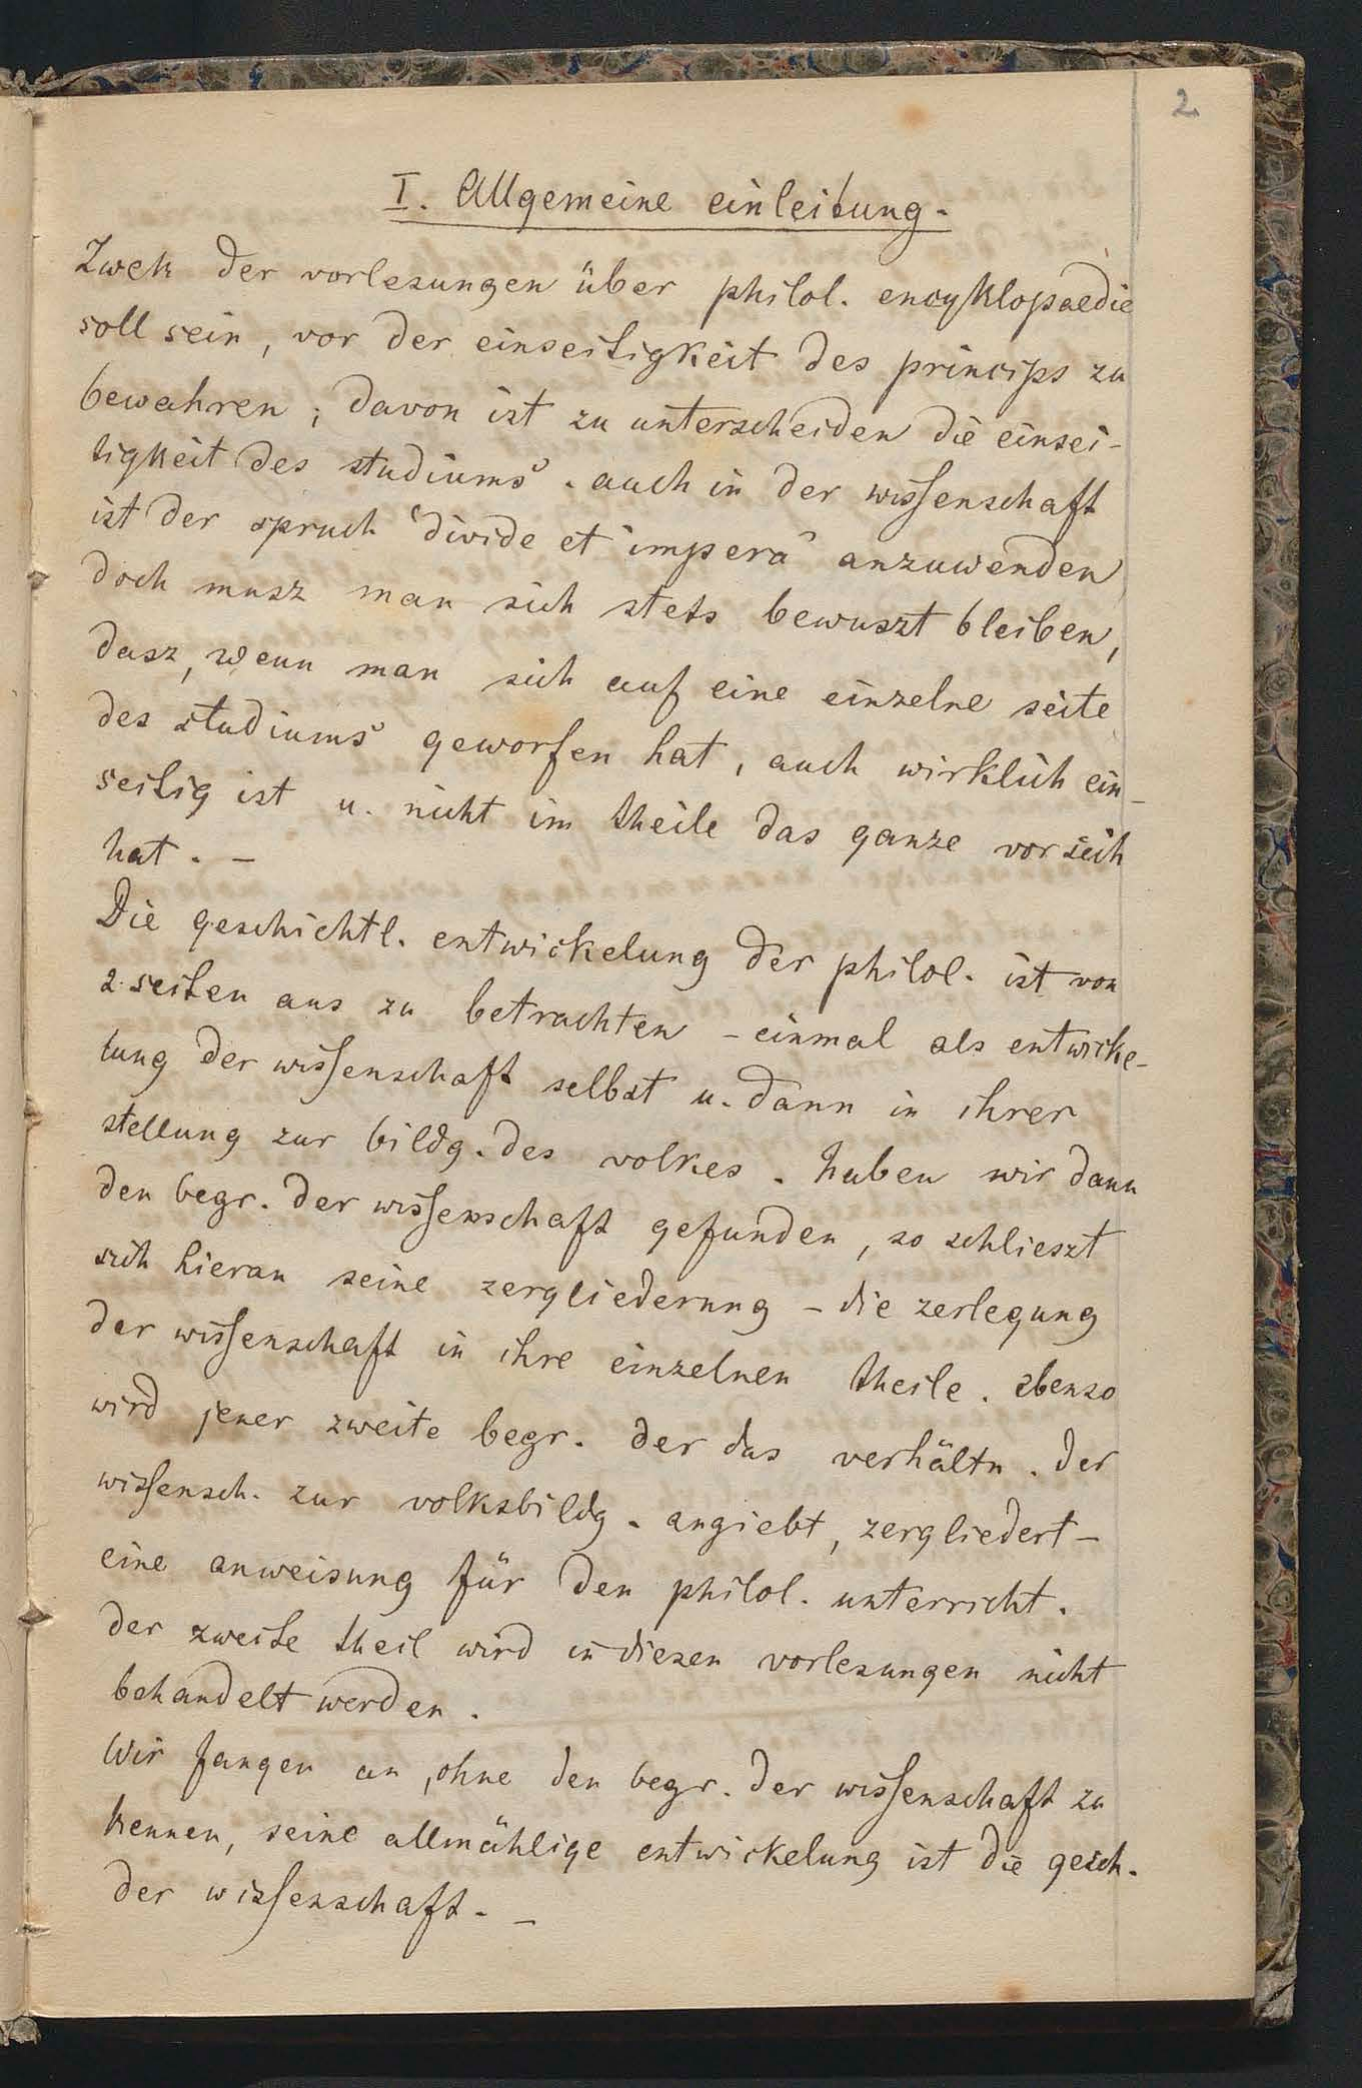 2
I. Allgemeine einleitung.
Zwek der vorlesungen über philol. encyklopaedie
soll sein, vor der einseitigkeit des princips zu
bewahren; davon ist zu unterscheiden die einsei-
tigkeit des studiums. auch in der wissenschaft
ist der spruch 'divide et impera' anzuwenden
doch musz man sich stets bewuszt bleiben,
dasz, wenn man sich auf eine einzelne seite
des studiums geworfen hat, auch wirklich ein-
seitig ist u. nicht im theile das ganze vor sich
hat. –
Die geschichtl. entwickelung der philol. ist von
2 seiten aus zu betrachten – einmal als entwicke-
lung der wissenschaft selbst u. dann in ihrer
stellung zur bildg. des volkes. haben wir dann
den begr. der wissenschaft gefunden, so schlieszt
sich hieran seine zergliederung – die zerlegung
der wissenschaft in ihre einzelnen theile. ebenso
wird jener zweite begr. der das verhältn. der
wissensch. zur volksbildg. angiebt, zergliedert –
eine anweisung für den philol. unterricht.
der zweite theil wird in diesen vorlesungen nicht
behandelt werden.
Wir fangen an, ohne den begr. der wissenschaft zu
kennen, seine allmählige entwickelung ist die gesch.
der wissenschaft. –